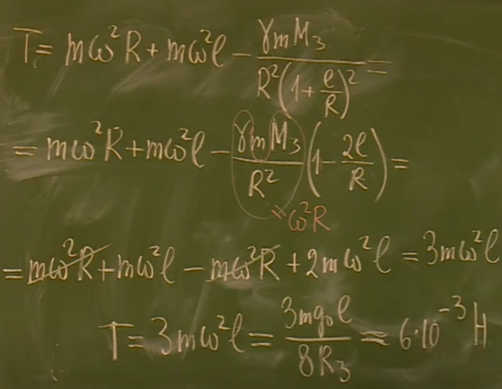 T = mω²R + mω²l − γmM₃ / R²(1 + l/R)² =
= mω²R + mω²l − γmM₃ / R² (1 − 2l/R) =
= ω²R
= mω²R + mω²l − mω²R + 2mω²l = 3mω²l
T = 3mω²l = 3mg₀l / 8R₃ ≈ 6·10⁻³ Н